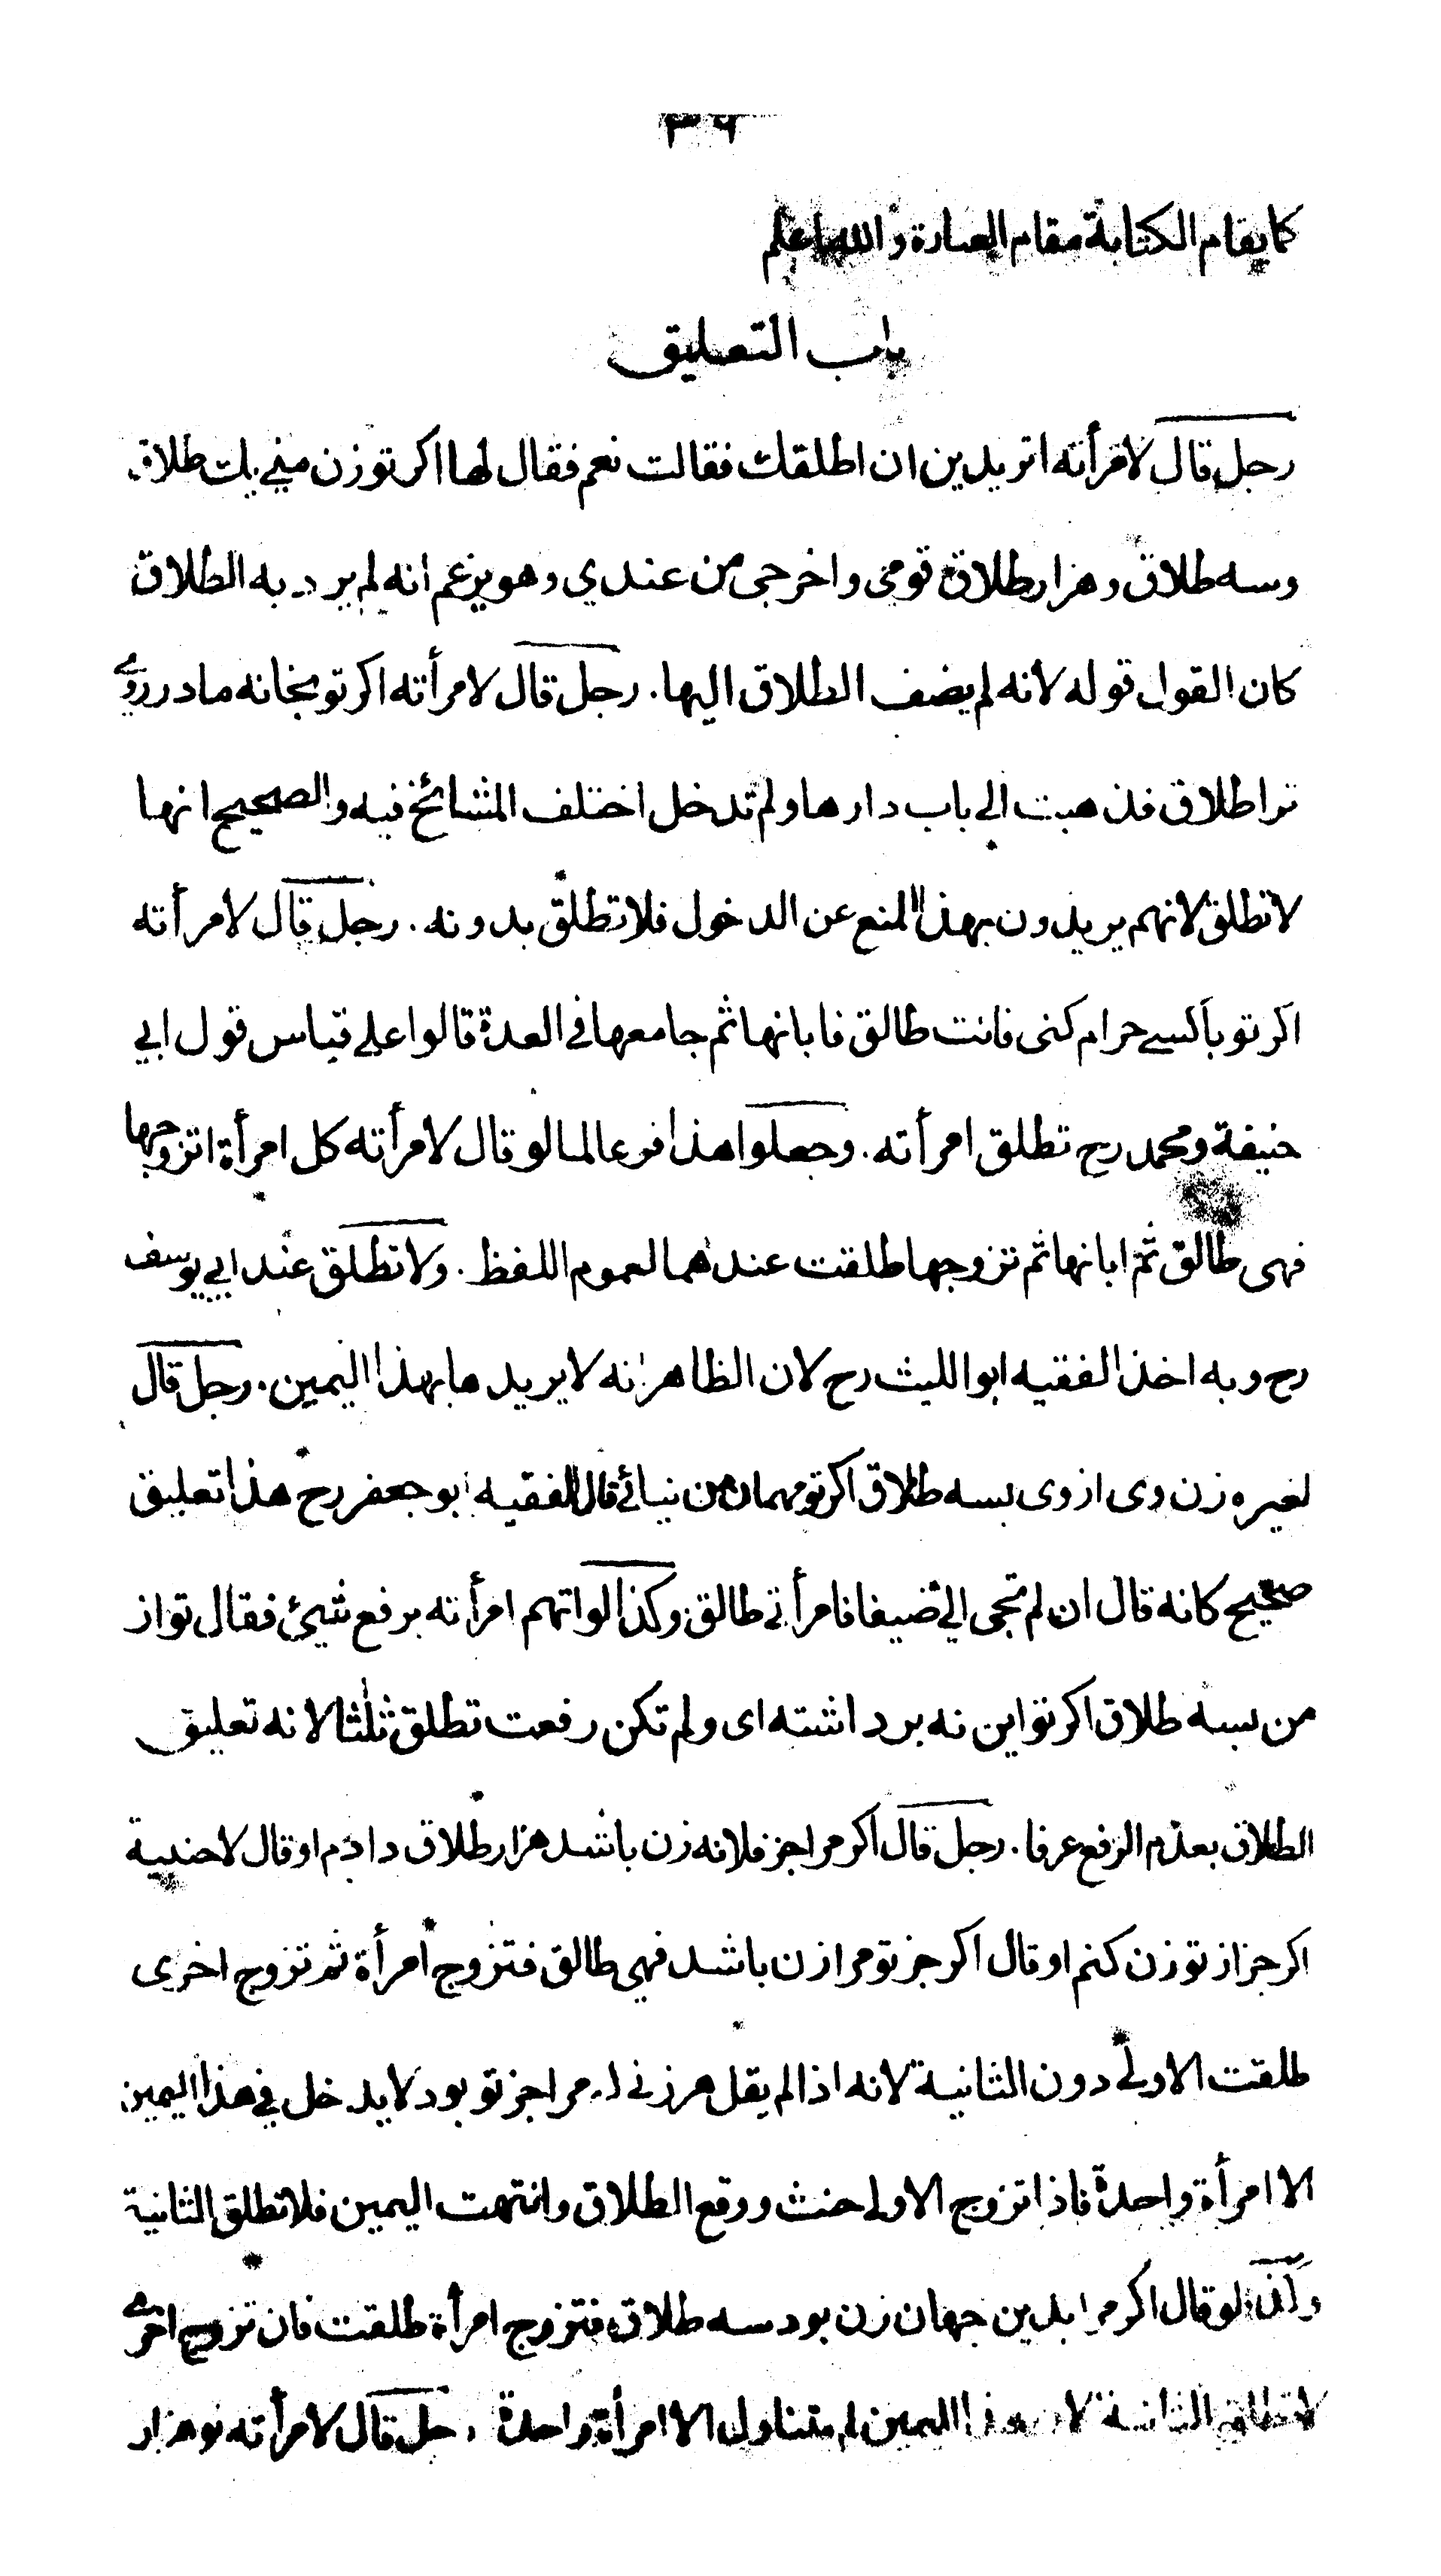 ٣٦
كما يقام الكتابة مقام العبارة والله اعلم
باب التعليق
رجل قال لامرأته اتريدين ان اطلقك فقالت نعم فقال لها اكر توزن منے يك طلاق
وسه طلاق وهزار طلاق قومى واخرجى من عندي وهو يزعم انه لم يرد به الطلاق
كان القول قوله لانه لم يضف الطلاق اليها. رجل قال لامرأته اكر تو بخانه مادر روے
ترا طلاق فذهبت الى باب دارها ولم تدخل اختلف المشائخ فيه والصحيح انها
لا تطلق لانهم يريدون بهذا المنع عن الدخول فلا تطلق بدونه. رجل قال لامرأته
اكر تو باكسے حرام كنى فانت طالق فابانها ثم جامعها في العدة قالوا على قياس قول ابي
حنيفة ومحمد رح تطلق امرأته. وجعلوا هذا فرعا لما لو قال لامرأته كل امرأة اتزوجها
فهى طالق ثم ابانها ثم تزوجها طلقت عندهما لعموم اللفظ. ولا تطلق عند ابي يوسف
رح وبه اخذ الفقيه ابو الليث رح لان الظاهر انه لا يريدها بهذا اليمين. رجل قال
لغيره زن وى از وى بسه طلاق اكر تو مهمان من نيائے قال الفقيه ابو جعفر رح هذا تعليق
صحيح كانه قال ان لم تجى الىّ ضيفا فامرأتي طالق وكذا لو اتهم امرأته برفع شيئ فقال تو از
من بسه طلاق اكر تو اين نه برداشته اى ولم تكن رفعت تطلق ثلٰثا لانه تعليق
الطلاق بعدم الرفع عرفا. رجل قال اكر مرا جز فلانه زن باشد هزار طلاق دادم او قال لاجنبية
اكر جز از تو زن كنم او قال اكر جز تو مرا زن باشد فهى طالق فتزوج امرأة ثم تزوج اخرى
طلقت الاولى دون الثانية لانه اذا لم يقل هر زنے كه مرا جز تو بود لا يدخل في هذا اليمين
الا امرأة واحدة فاذا تزوج الاولى حنث ووقع الطلاق وانتهت اليمين فلا تطلق الثانية
وكذا لو قال اكر مرا بدين جهان زن بود سه طلاق فتزوج امرأة طلقت فان تزوج اخرے
لا تطلق الثانية لان هذا اليمين لم يتناول الا امرأة واحدة. رجل قال لامرأته تو هزار